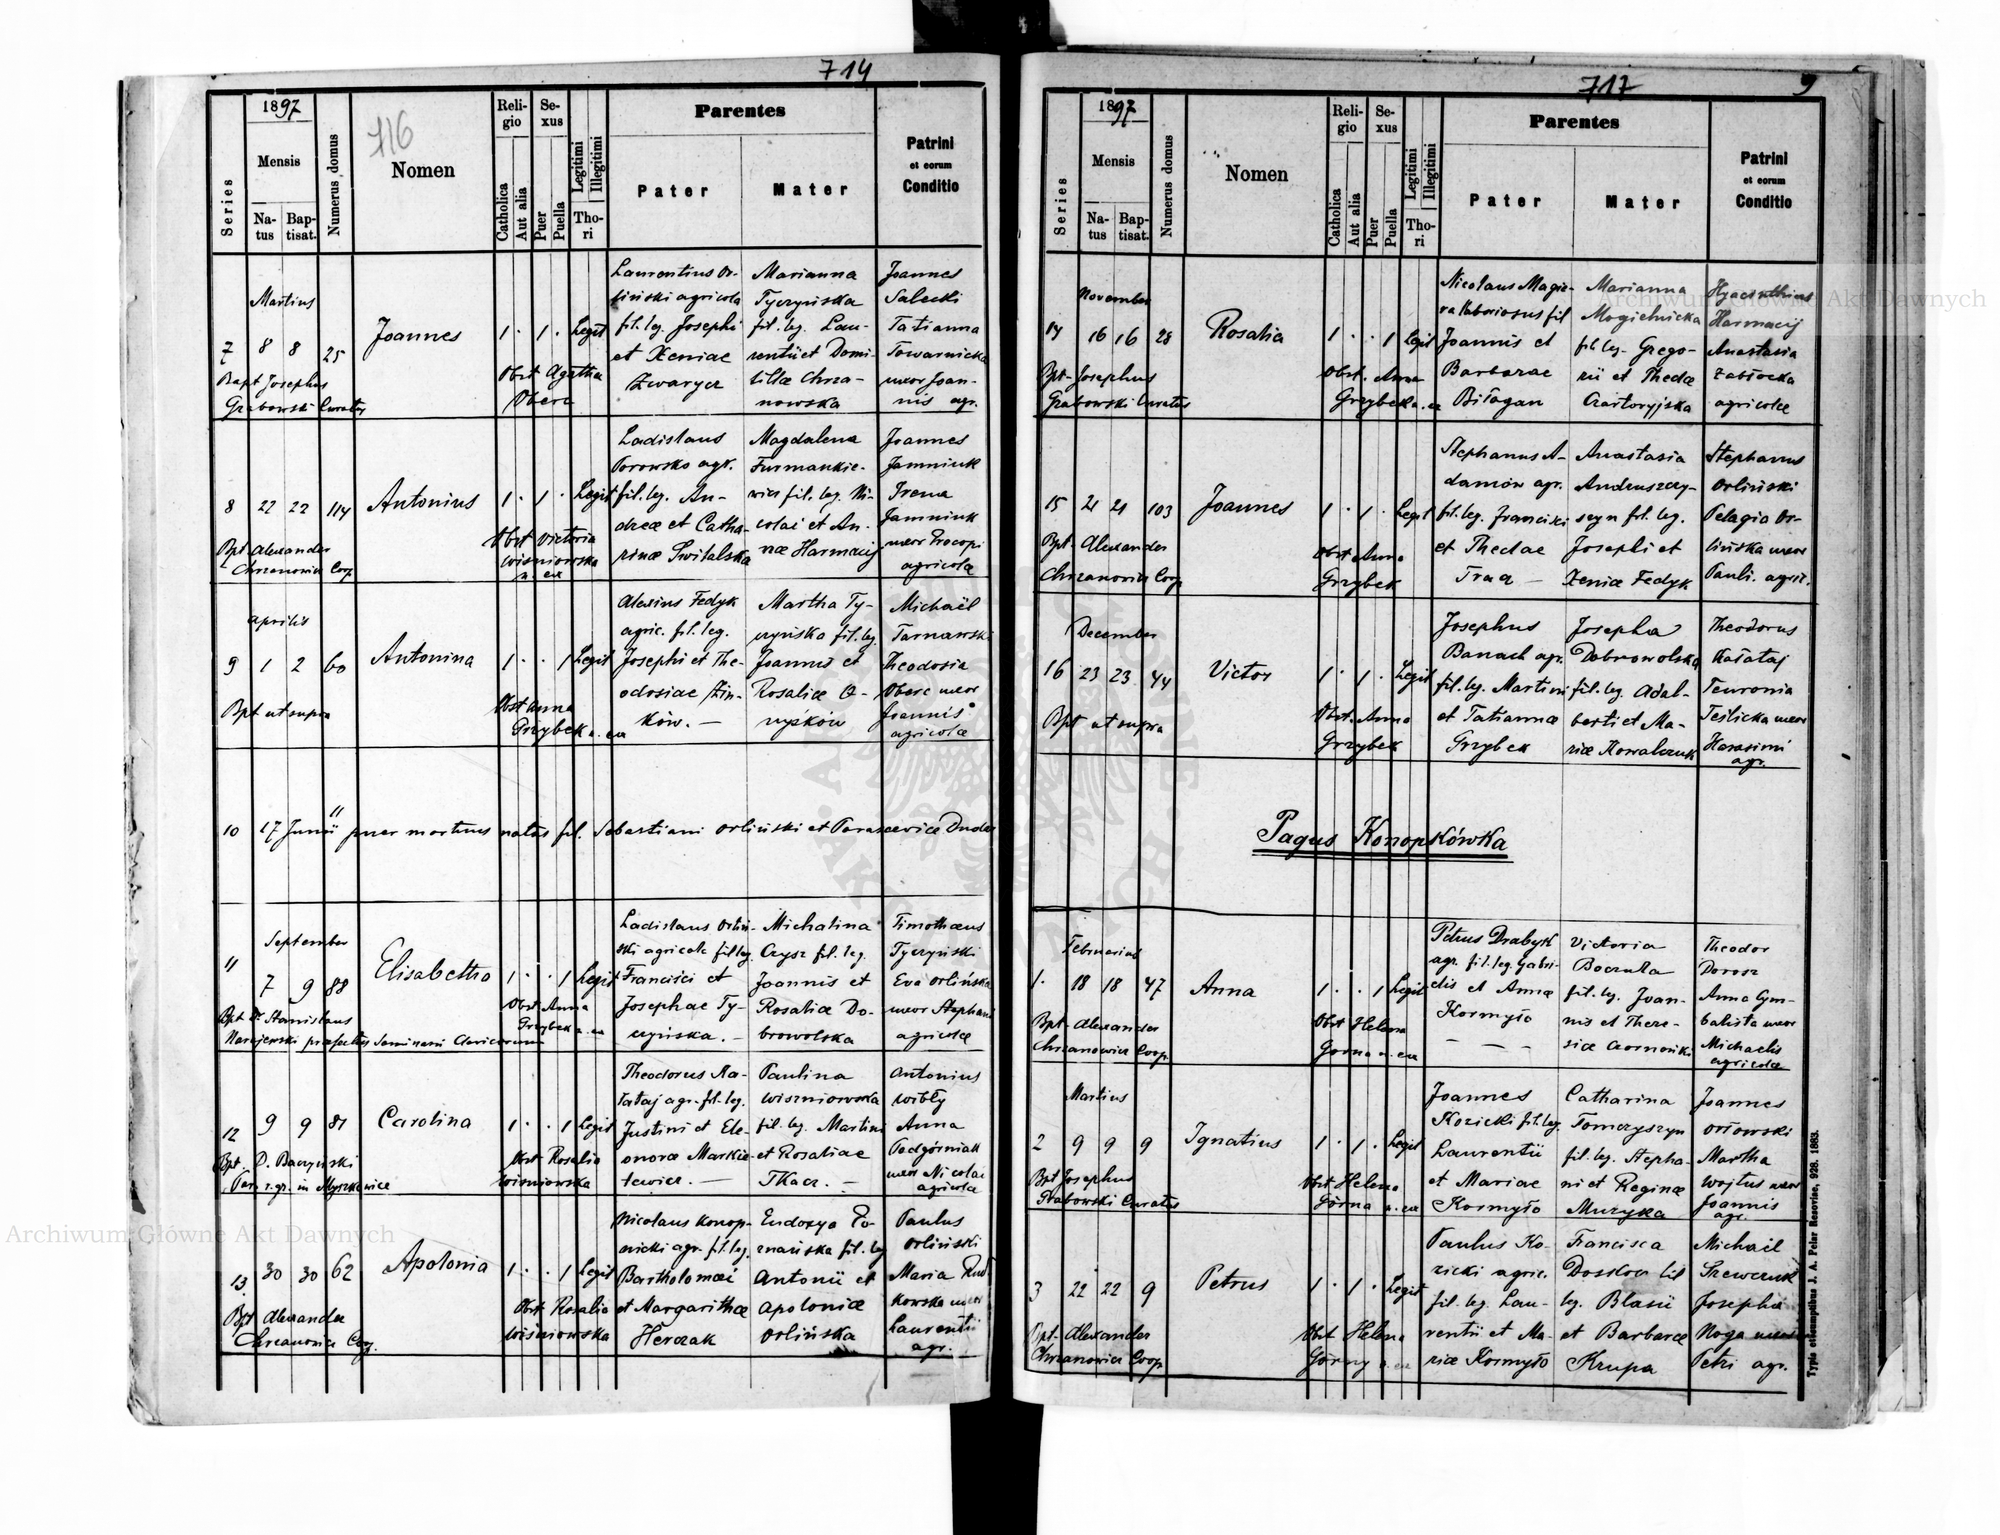 714
1897
716
Series
Mensis
Na-
tus
Bap-
tisat.
Numerus domus
Nomen
Reli-
gio
Catholica
Aut alia
Se-
xus
Puer
Puella
Legitimi
Illegitimi
Tho-
ri
Parentes
Pater
Mater
Patrini
et eorum
Conditio
Martius
7 8 8 25
Joannes
1 · 1 · Legit
Laurentius Or-
liński agricola
fil. leg. Josephi
et Xeniae
Zwarycz
Marianna
Tyczyńska
fil. leg. Lau-
rentii et Domi-
tillae Chrza-
nowska
Joannes
Salecki
Tatianna
Towarnicka
uxor Joan-
nis agr.
Bapt Josephus
Grabowski Curatus
Obst Agatha
Oberc
8 22 22 114
Antonius
1 · 1 · Legit
Ladislaus
Porowsko agr.
fil. leg. An-
dreae et Catha-
rinae Świtalska
Magdalena
Furmankie-
wicz fil. leg. Ni-
colai et An-
nae Harmacij
Joannes
Jamniuk
Irena
Jamniuk
uxor Procopi
agricolae
Bpt Alexander
Chrzanowicz Coop.
Obst Victoria
Wiśniowska
n. ex
Aprilis
9 1 2 60
Antonina
1 · · 1 Legit
Alexius Fedyk
agric. fil. leg.
Josephi et The-
odosiae Zin-
ków. —
Martha Ty-
czyńska fil. leg.
Joannis et
Rosaliae O-
Michaël
Tarnawski
Theodosia
Oberc uxor
Joannis
agricolae
Bpt ut supra
Obst Anna
Grzybek n. ex
10 17 Junii " puer mortuus natus fil. Sebastiani Orliński et Parascevicae Dudar
September
11 7 9 88
Elisabetha
1 · · 1 Legit
Ladislaus Orliń-
ski agricola fil leg.
Francisci et
Josephae Ty-
czyńska. —
Michalina
Czysz fil. leg.
Joannis et
Rosaliae Do-
browolska
Timothaeus
Tyczyński
Eva Orlińska
uxor Stephani
agricolae
Bpt Dr Stanislaus
Narajewski praefectus Seminarii Clericorum
Obst Anna
Grzybek n. ex
12 9 9 87
Carolina
1 · · 1 Legit
Theodorus Ka-
łataj agr. fil. leg.
Justini et Ele-
onorae Markie-
lewicz. —
Paulina
Wiszniowska
fil. leg. Martini
et Rosaliae
Tkacz. —
Antonius
Wibły
Anna
Podgórniak
uxor Nicolai
agricolae
Bpt P. Baczyński
Par. r. gr. in Myszkowice
Obst Rosalia
Wiśniowska
13 30 30 62
Apolonia
1 · · 1 Legit
Nicolaus Konop-
nicki agr. fil. leg.
Bartholomaei
et Margarithae
Herczak
Eudoxya Po-
znańska fil. leg
Antonii et
Apoloniae
Orlińska
Paulus
Orliński
Maria Rud-
kowska uxor
Laurentii
agr.
Bpt Alexander
Chrzanowicz Coop.
Obst Rosalia
Wiśniowska
717
9
1897
Series
Mensis
Na-
tus
Bap-
tisat.
Numerus domus
Nomen
Reli-
gio
Catholica
Aut alia
Se-
xus
Puer
Puella
Legitimi
Illegitimi
Tho-
ri
Parentes
Pater
Mater
Patrini
et eorum
Conditio
November
14 16 16 28
Rosalia
1 · · 1 Legit
Nicolaus Magie-
ra laboriosus fil
Joannis et
Barbarae
Biłagan
Marianna
Mogielnicka
fil. leg. Grego-
rii et Theclae
Czartoryjska
Hyacinthius
Harmacij
Anastasia
Zabłocka
agricolae
Bpt. Josephus
Grabowski Curatus
Obst. Anna
Grzybek n. ex
15 21 21 103
Joannes
1 · 1 · Legit
Stephanus A-
damów agr.
fil. leg. Francisci
et Theclae
Tracz —
Anastasia
Andruszczy-
szyn fil. leg.
Josephi et
Xeniae Fedyk
Stephanus
Orliński
Pelagia Or-
lińska uxor
Pauli. agric.
Bpt. Alexander
Chrzanowicz Coop
Obst Anna
Grzybek
December
16 23 23 44
Victor
1 · 1 · Legit
Josephus
Banach agr.
fil. leg. Martini
et Tatiannae
Grzybek
Josepha
Dobrowolska
fil. leg. Adal-
berti et Ma-
riae Kowalczuk
Theodorus
Kałataj
Teuronia
Teślicka uxor
Harasimi
agr.
Bpt ut supra
Obst. Anna
Grzybek
Pagus Konopkówka
Februarius
1. 18 18 47
Anna
1 · · 1 Legit
Petrus Drabyk
agr. fil. leg. Gabri-
elis et Annae
Kormyło
— — —
Victoria
Boczula
fil. leg. Joan-
nis et There-
siae Czornonicki
Theodor
Dorosz
Anna Gym-
balista uxor
Michaelis
agricolae
Bpt. Alexander
Chrzanowicz Coop.
Obst Helena
Gorna n. ex
Martius
2 9 9 9
Ignatius
1 · 1 · Legit
Joannes
Kozicki fil. leg.
Laurentii
et Mariae
Kormyło
Catharina
Tomczyszyn
fil. leg. Stepha-
ni et Reginae
Muzyka
Joannes
Orłowski
Martha
Wojtus uxor
Joannis
agr.
Bpt Josephus
Grabowski Curatus
Obst Helena
Górna n. ex
3 22 22 9
Petrus
1 · 1 · Legit
Paulus Ko-
zicki agric.
fil. leg. Lau-
rentii et Ma-
riae Kormyło
Francisca
leg. Blasii
et Barbarae
Krupa
Michael
Szewczuk
Josepha
Noga uxor
Petri agr.
Bpt. Alexander
Chrzanowicz Coop
Obst Helena
Górny n. ex
Typis et sumptibus J. A. Pelar Resoviae, 928. 1883.
Archiwum Główne Akt Dawnych
Archiwum Główne Akt Dawnych